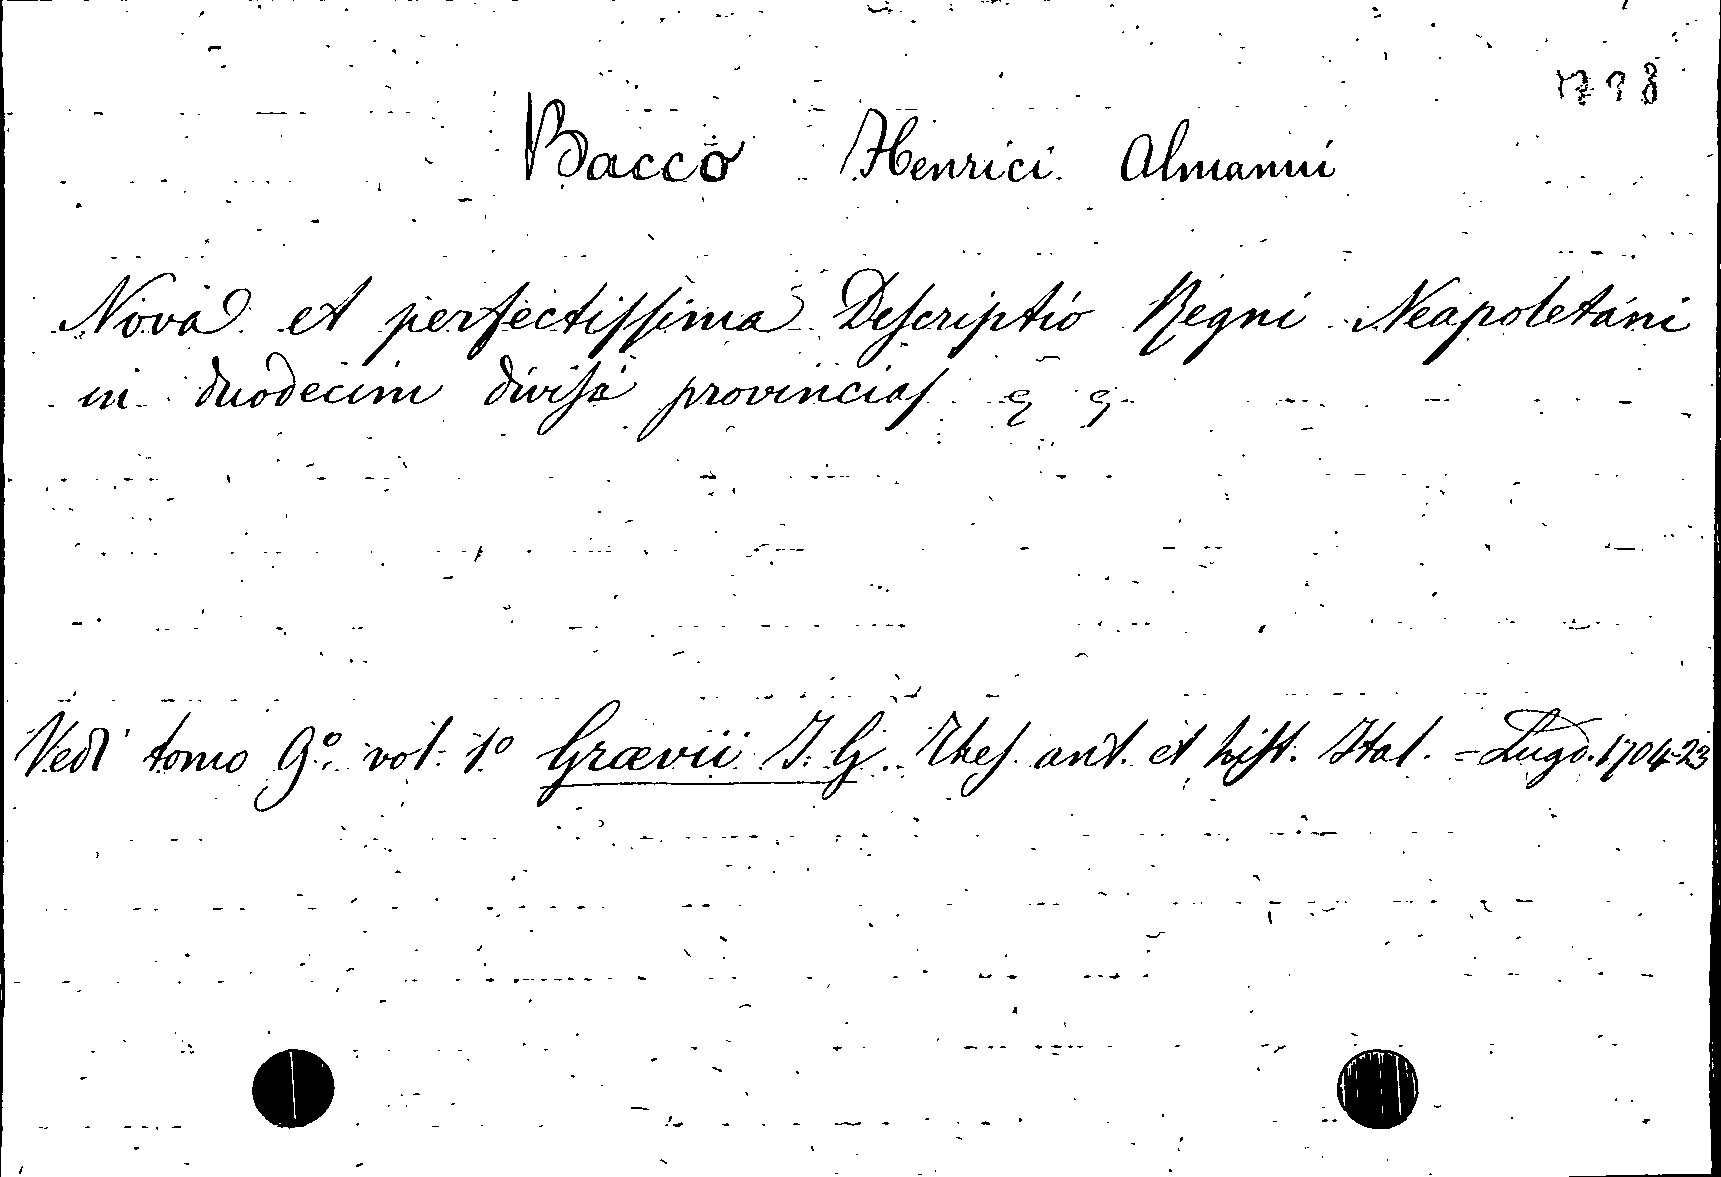 Bacco Henrici Almanni
Nova et perfectissima Descriptio Regni Neapoletani
in duodecim divisa provincias
Vedi tomo 9º vol. 1º Grævii J. G. Thes. ant. et hist. Ital. = Lugd. 1704-23